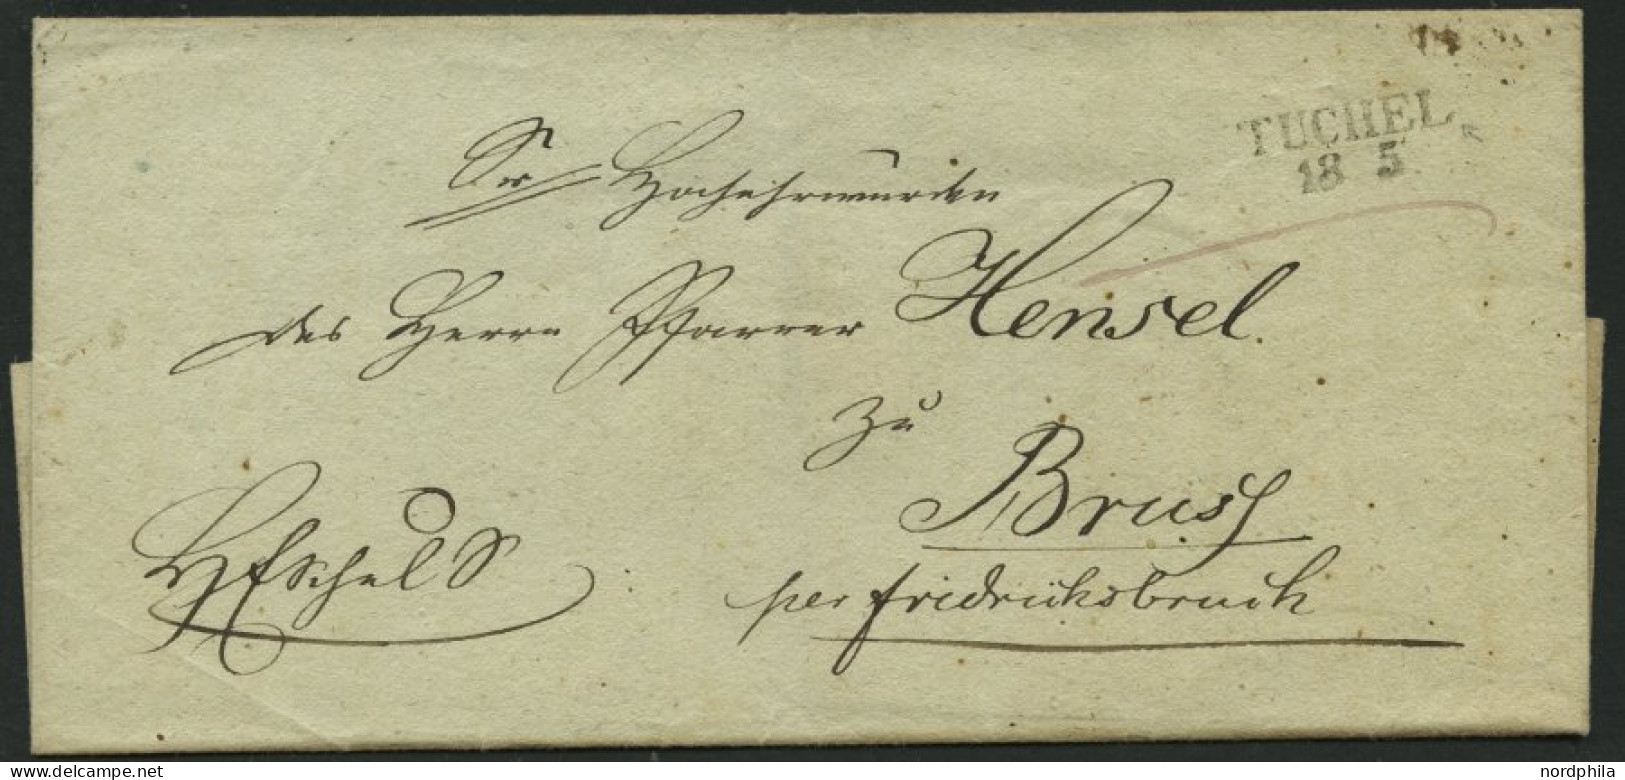 TUCHEL
18 5
Sr Hochehrwürden
des Herrn Pfarrer Hensel.
zu
Brusß
per Fridrichsbruch
delcampe.net
nordphila